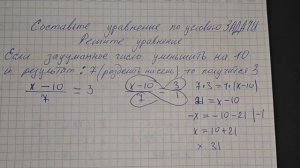 Составьте уравнение по условию ЗАДАЧИ
Решите уравнение
Если задуманное число уменьшить на 10
и результат : 7 (разделить на семь) то получится 3
x-10/7 = 3
x-10/7 = 3/1
7·3=1·(x-10)
21 = x-10
-x = -10-21 |-1
x = 10+21
x 31